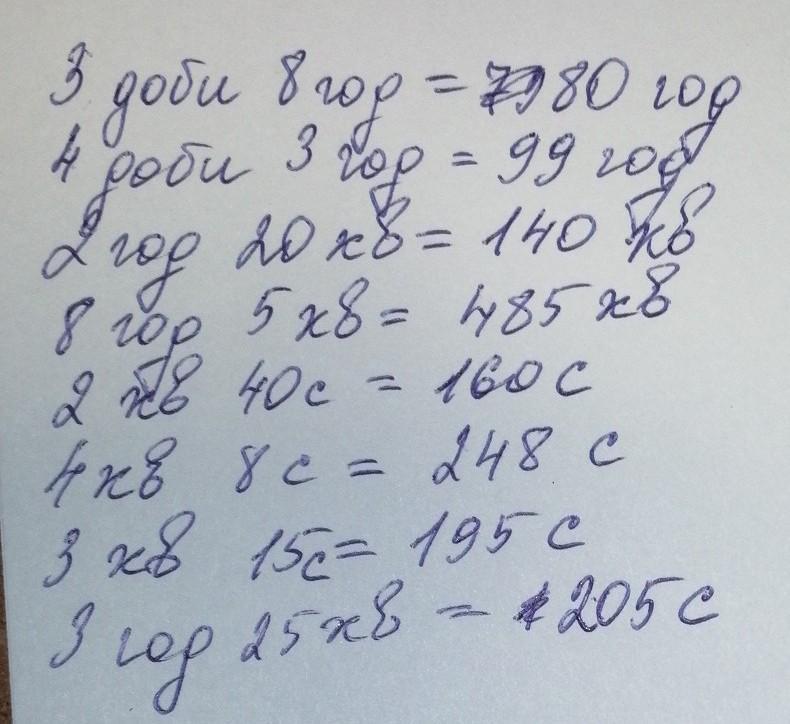 3 доби 8 год = 80 год
4 доби 3 год = 99 год
2 год 20 хв = 140 хв
8 год 5 хв = 485 хв
2 хв 40 с = 160 с
4 хв 8 с = 248 с
3 хв 15 с = 195 с
3 год 25 хв = 205 с